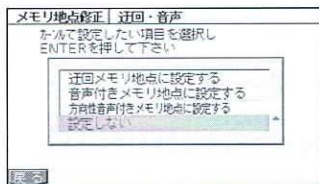 メモリ地点修正 迂回・音声
カーソルで設定したい項目を選択し
ENTERを押して下さい
迂回メモリ地点に設定する
音声付きメモリ地点に設定する
方向性音声付きメモリ地点に設定する
設定しない
戻る